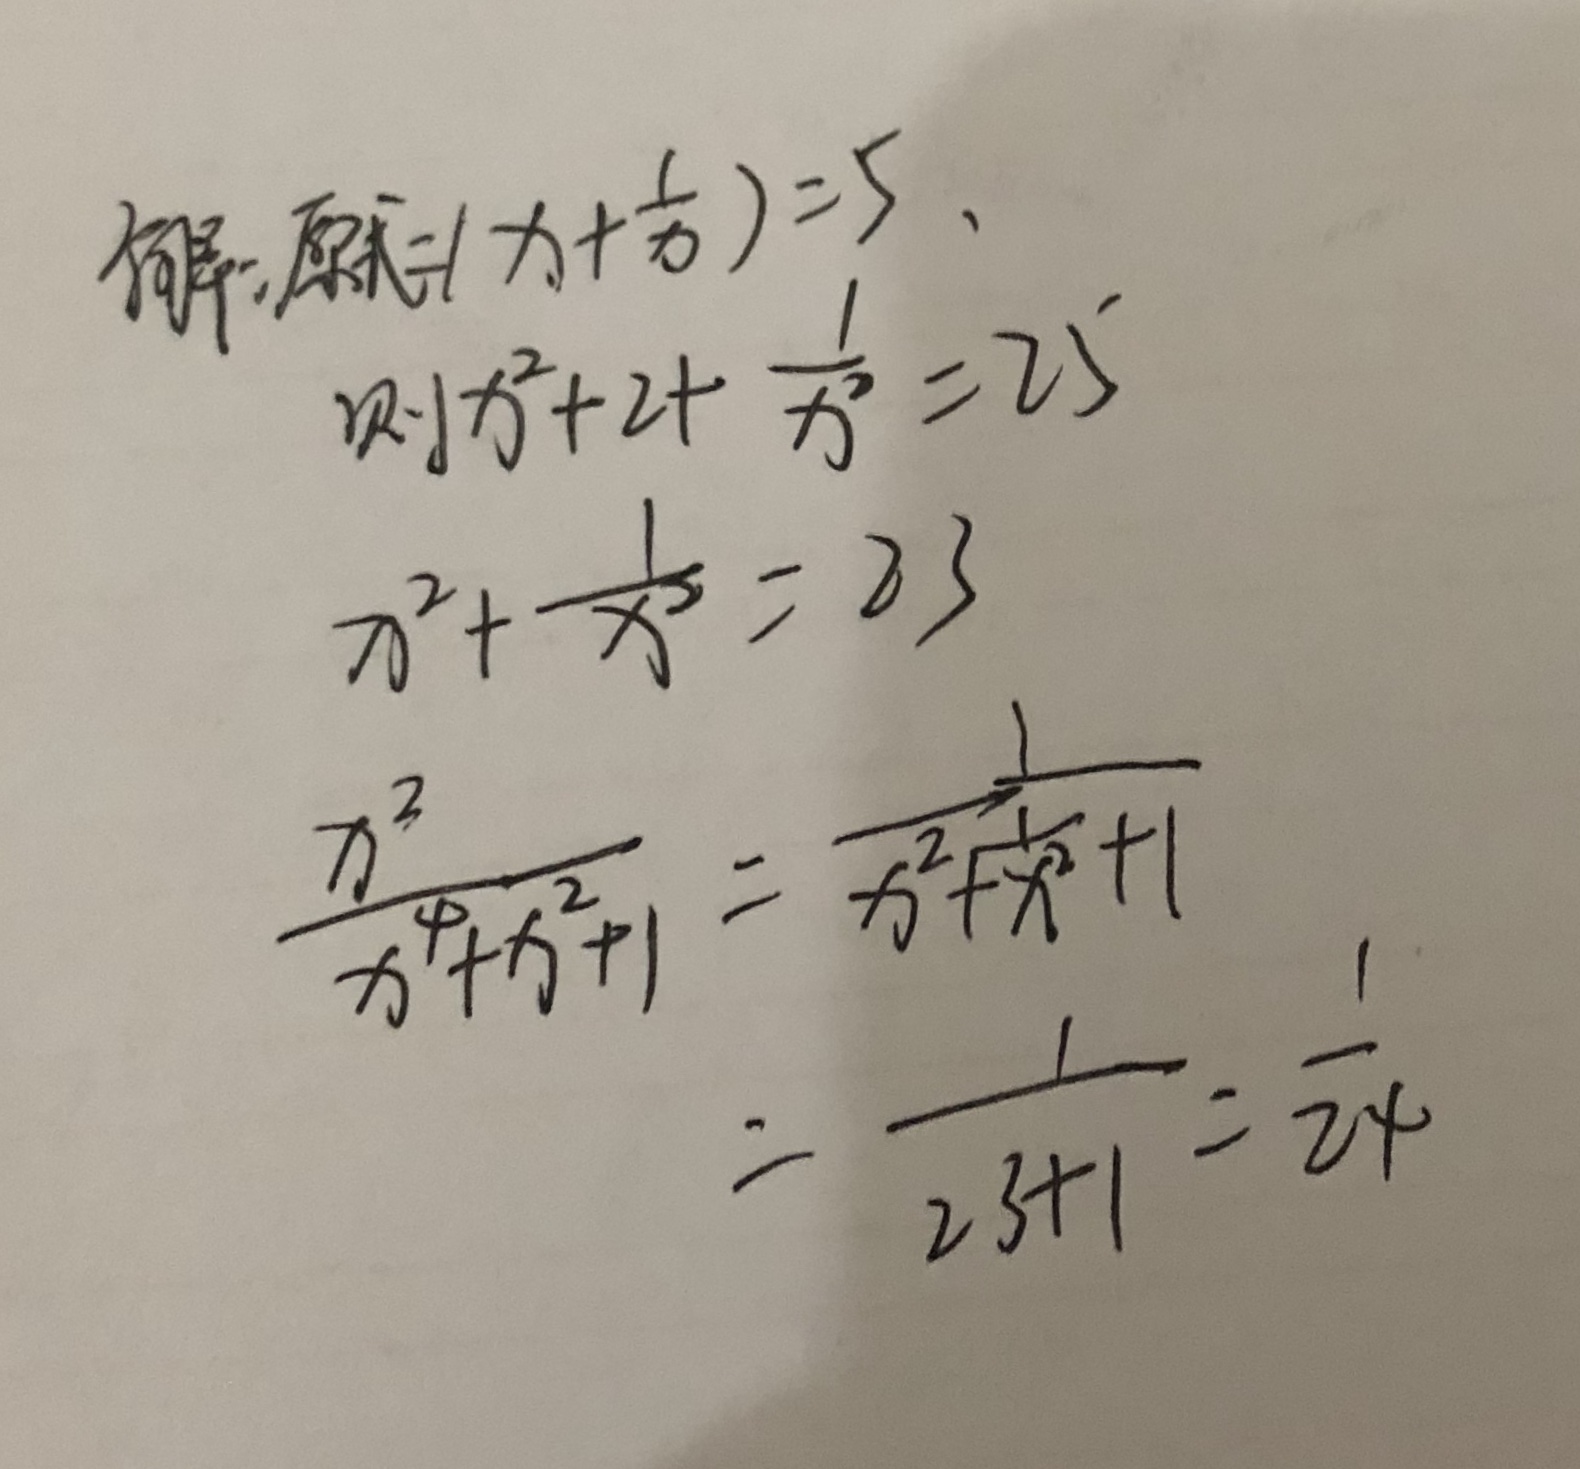 解:原式=(x+1/x)=5、
则x²+2+1/x²=25
x²+1/x²=23
x²/(x⁴+x²+1)=1/(x²+1/x²+1)
=1/(23+1)=1/24